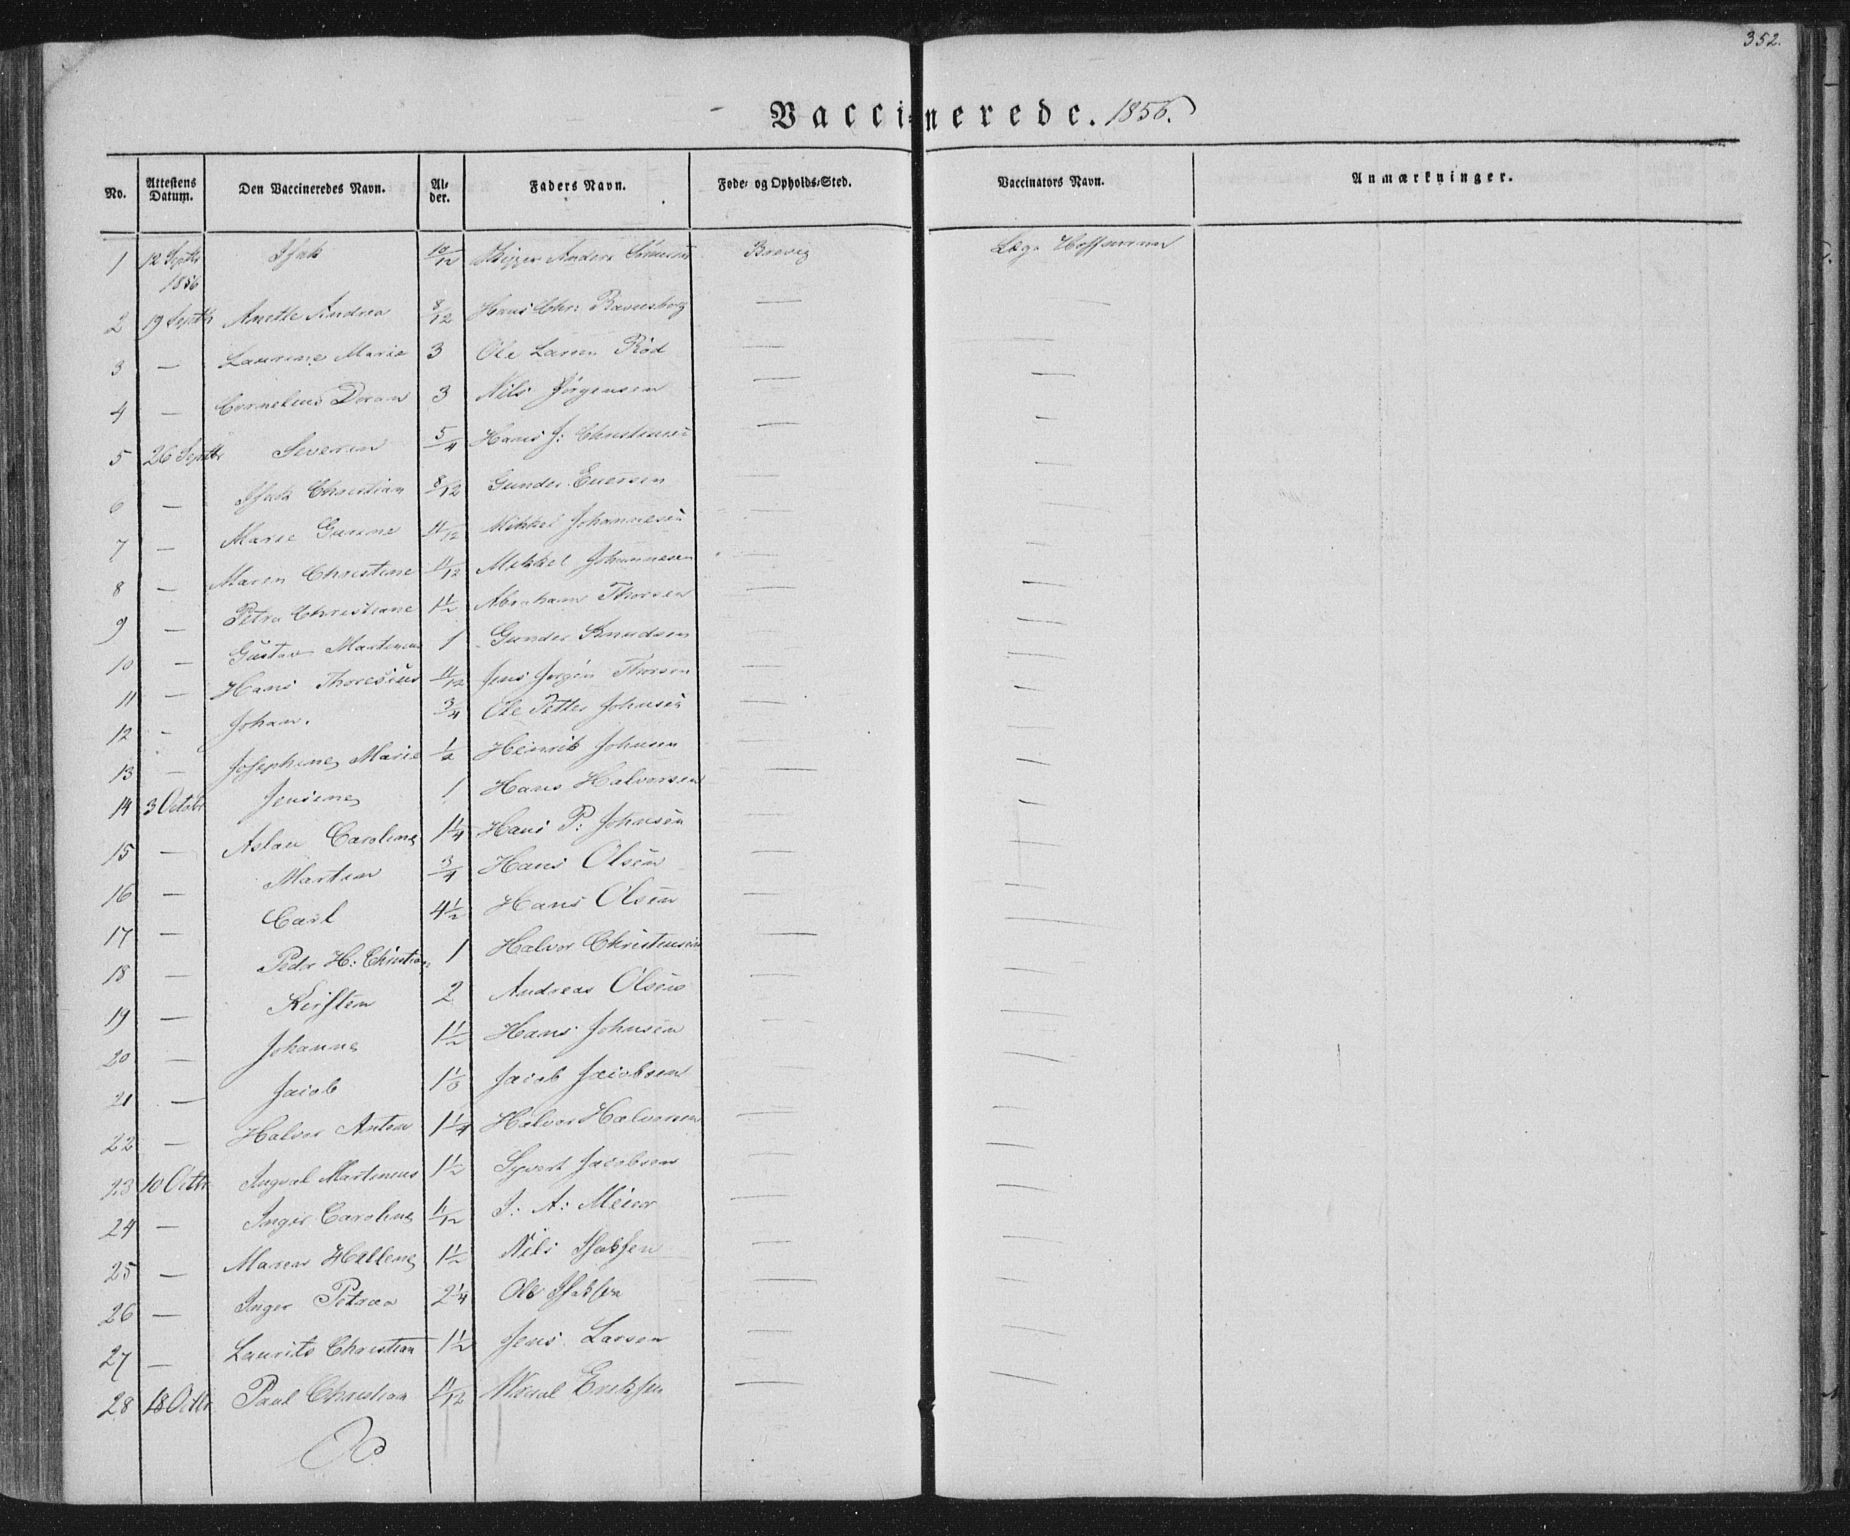 352.
Vaccinerede. 1856.
No. Attestens Datum. Den Vaccineredes Navn. Al-der. Faders Navn. Føde- og Opholds-Sted. Vaccinators Navn. Anmærkninger.
1 12 Septbr 1856 Isak 10/12 Anders Brevig Læge Hoffmann
2 19 Septbr Anette Andrea 8/12 Hans Chr: Ravnsborg — —
3 — Laurine Marie 3 Ole Larsen Rød — —
4 — Cornelius Doran 3 Nils Jørgensen — —
5 26 Septbr Severin 5/4 Hans J: Christensen — —
6 — Isak Christian 8/12 Gunder Evensen — —
7 — Marie Gurine 11/12 Mikkel Johannesen — —
8 — Maren Christine 11/12 Mikkel Johannesen — —
9 — Petra Christiane 1½ Abraham Thorsen — —
10 — Gustav Martinius 1 Gunder Knudsen — —
11 — Hans Thoresius 11/12 Jens Jørgen Thorsen — —
12 — Johan. 3/4 Ole Petter Johnsen — —
13 — Josephine Marie ½ Heinrik Johnsen — —
14 3 Octobr Jensine 1 Hans Halvorsen — —
15 — Aslau Caroline 1¼ Hans P: Johnsen — —
16 — Martin 3/4 Hans Olsen — —
17 — Carl 4½ Hans Olsen — —
18 — Peder H: Christian 1 Halvor Christensen — —
19 — Kirsten 2 Andreas Olsen — —
20 — Johanne 1½ Hans Johnsen — —
21 — Jacob 1⅓ Jacob Jacobsen — —
22 — Halvor Anton 1¼ Halvor Halvorsen — —
23 10 Octbr Ingval Martinius 1½ Syvert Jacobsen — —
24 — Inger Caroline 11/12 S: A: Meier — —
25 — Maren Hellene 1½ Nils Isaksen — —
26 — Inger Petrea 2¼ Ole Isaksen — —
27 — Laurits Christian 1½ Jens Larsen — —
28 18 Octbr Paul Christian 11/12 Eriksen — —